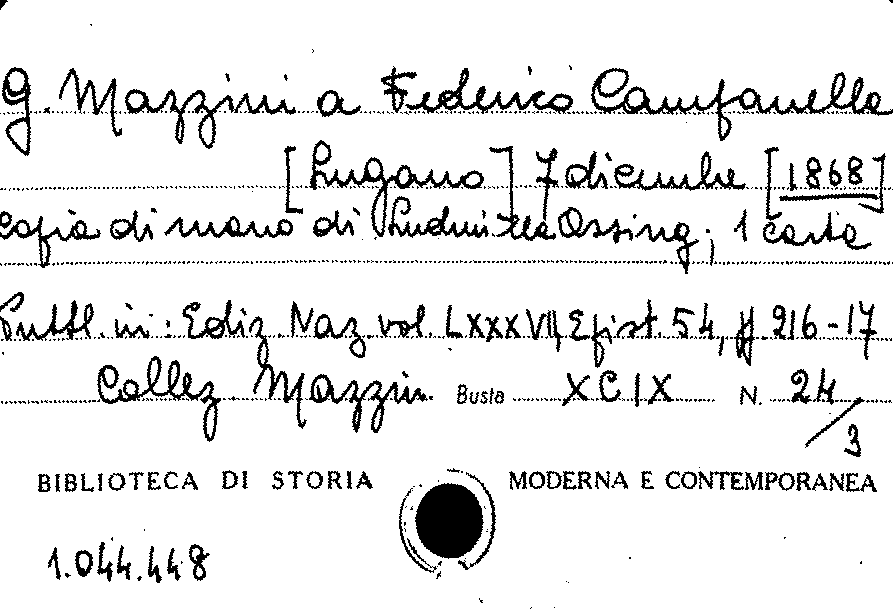 G. Mazzini a Federico Campanella
[Lugano] 7 dicembre [1868]
Copia di mano di Ludmilla Assing; 1 carta
Pubbl. in: Ediz. Naz. vol. LXXXVII, Epist. 54, pp. 216-17
Collez. Mazzin. Busta XCIX N. 24/3
BIBLIOTECA DI STORIA MODERNA E CONTEMPORANEA
1.044.448